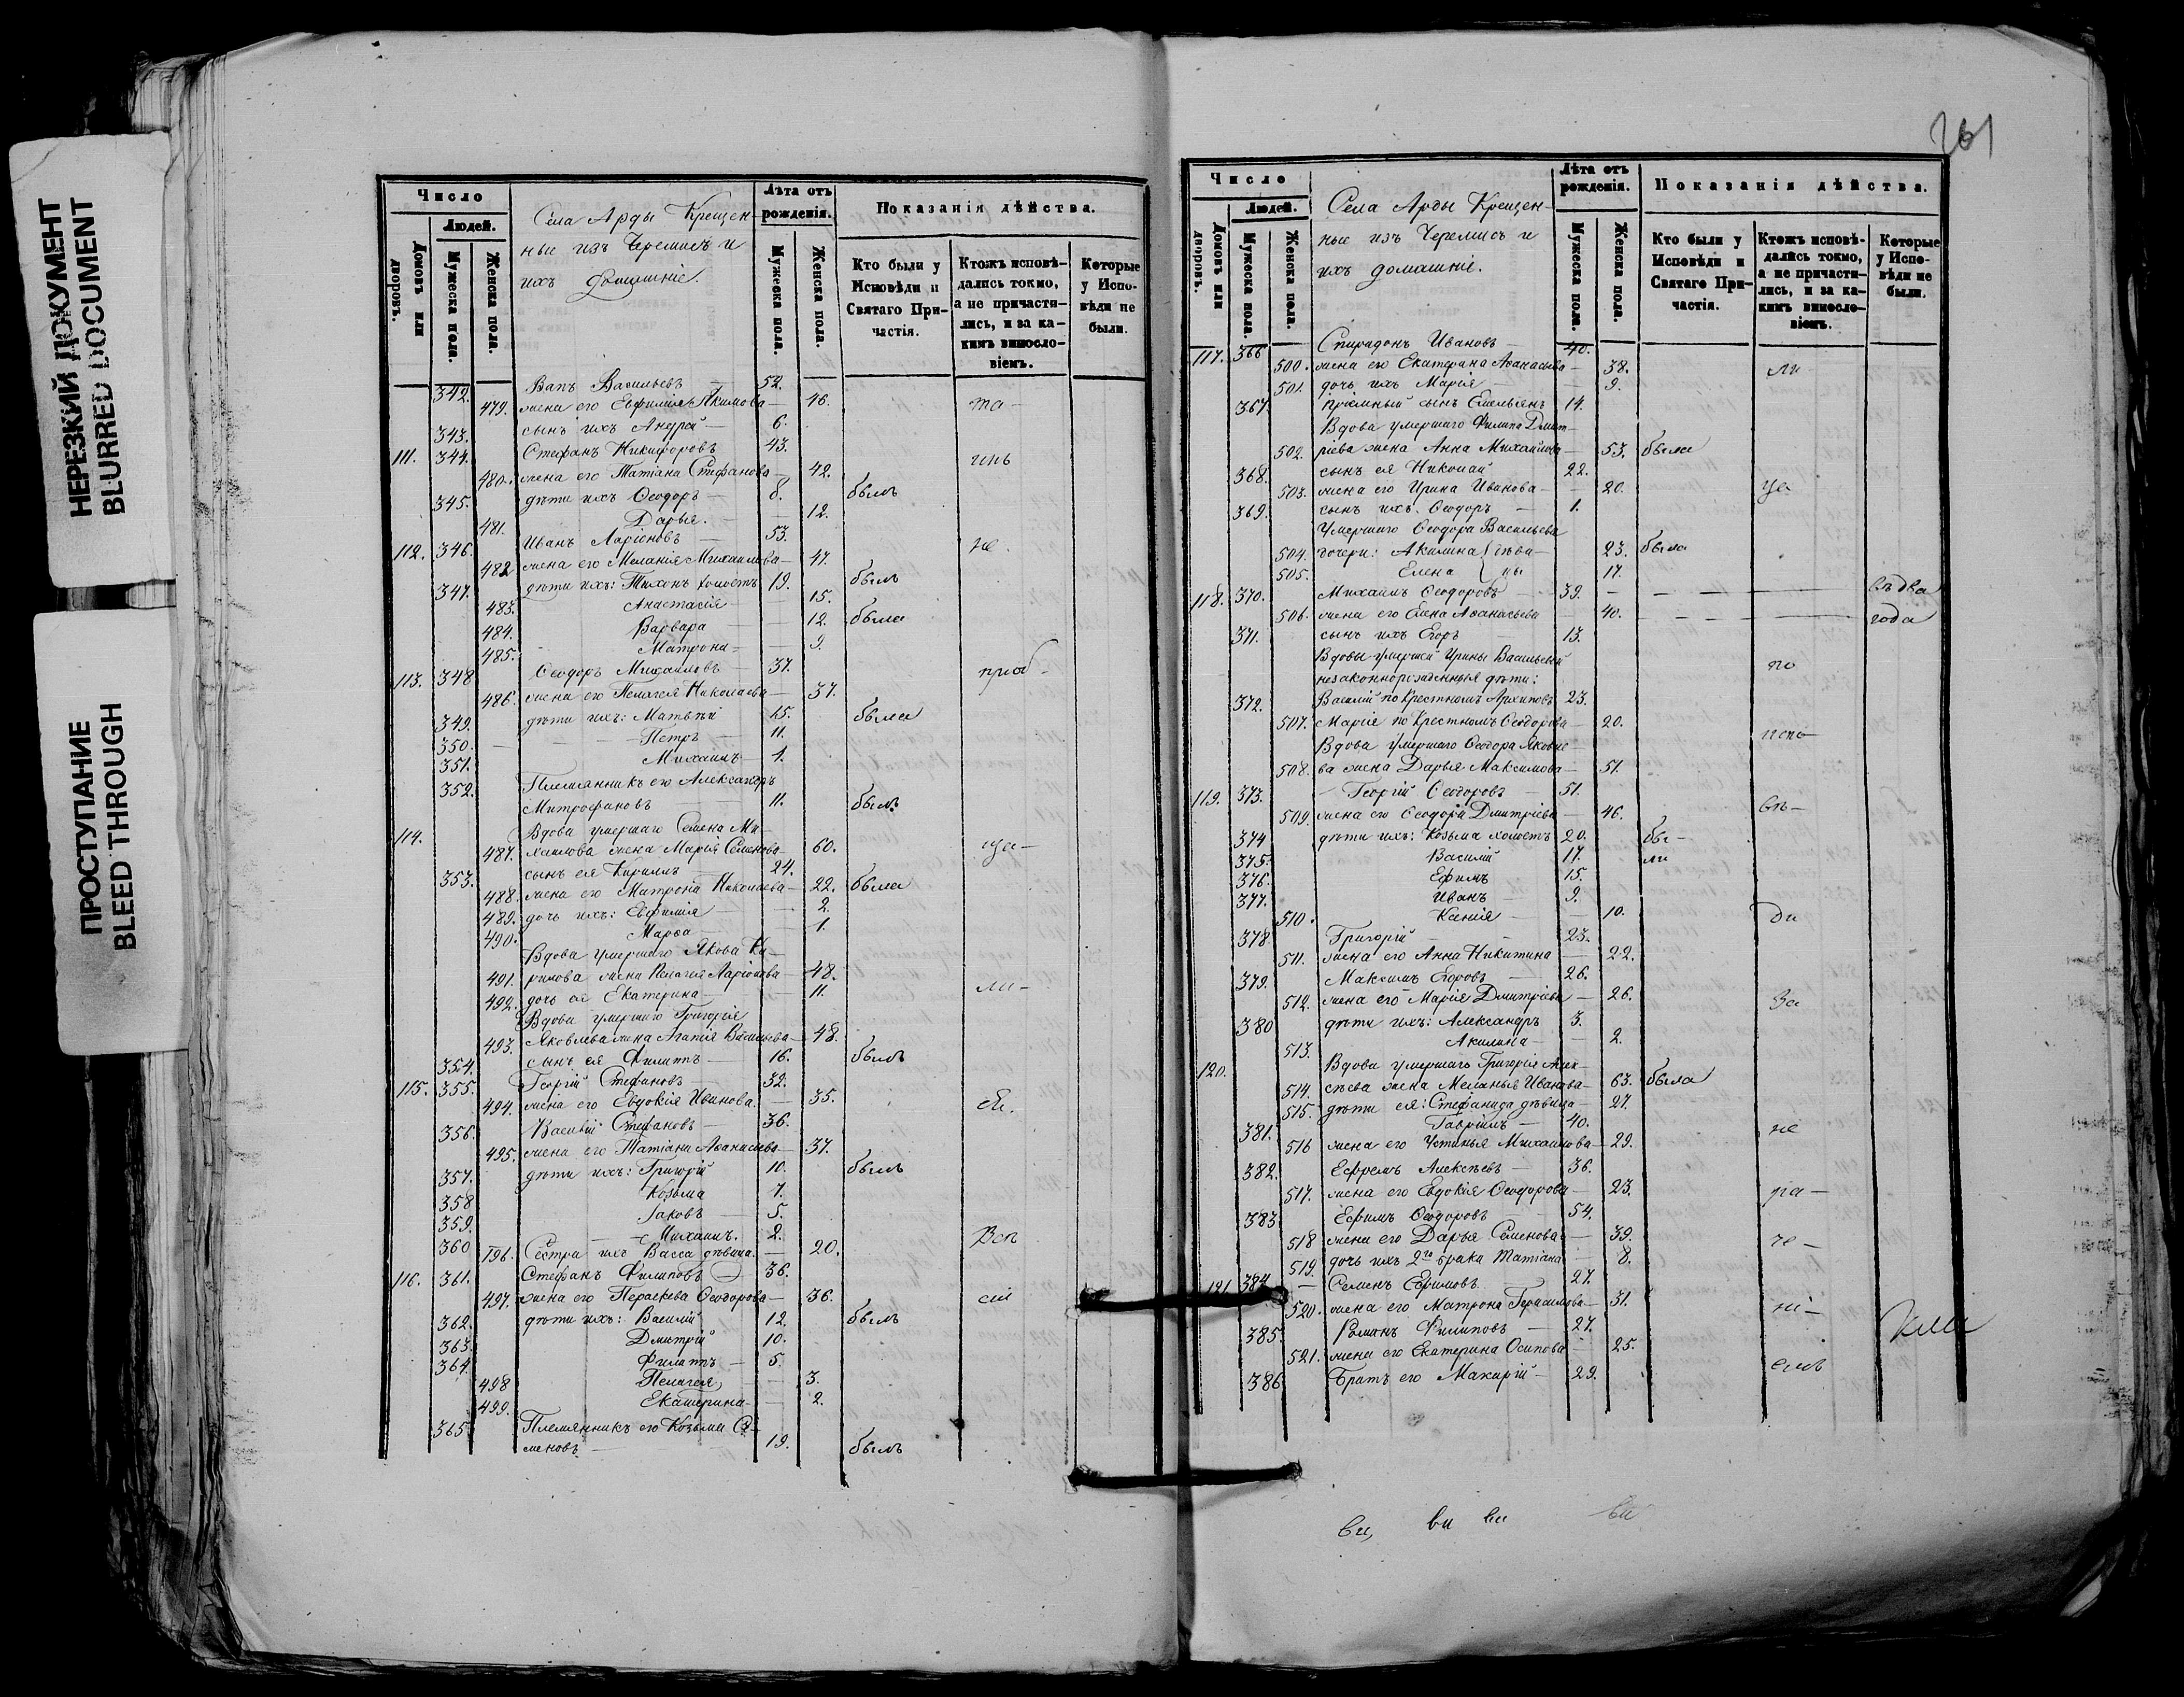 НЕРЕЗКИЙ ДОКУМЕНТ
BLURRED DOCUMENT
ПРОСТУПАНИЕ
BLEED THROUGH
Число
Людей.
Домовъ или дворовъ.
Мужеска пола.
Женска пола.
Села Арды Крещен-
ные изъ Черемисъ и
ихъ домашніе.
Лѣта отъ рожденія.
Мужеска пола.
Женска пола.
Показанія дѣйства.
Кто были у Исповѣди и Святаго Причастія.
Ктожъ исповѣдались токмо, а не причастились, и за какимъ винословіемъ.
Которые у Исповѣди не были.
342. Васильевъ — 52.
479. жена его Евфимія Якимова — 46. та-
343. сынъ ихъ Андрей — 6.
111. 344. Стефанъ Никифоровъ 43.
480. жена его Татіана Стефанова — 42.
345. дѣти ихъ Ѳеодоръ — 8. былъ
481. Дарья. — 12.
112. 346. Иванъ Ларіоновъ — 53. не.
482 жена его Меланія Михаилова — 47.
347. дѣти ихъ: Тихонъ холостъ 19. былъ
483. Анастасія — 15.
484. Варвара — 12. была
485. Матрона — 9.
113. 348 Ѳеодоръ Михаиловъ — 37.
486. жена его Пелагея Николаева — 37.
349. дѣти ихъ: Матвѣй 15. были
350. Петръ — 11.
351. Михаилъ — 4.
352. Племянникъ его Александръ
Митрофановъ — 11. былъ
114. Вдова умершаго Семена Ми-
487. хаилова жена Марія Семенова — 60. ща-
353. сынъ ея Кириллъ — 24.
488. жена его Матрона Николаева — 22. была
489. дочь ихъ: Евфимія — 2.
490. Марѳа — 1.
Вдова умершаго Якова Ки-
491. рилова жена Пелагея Ларіонова — 48.
492. дочь ея Екатерина — 11. ли-
Вдова умершаго Григорія
493. Яковлева жена Агапія Васильева — 48.
354. сынъ ея Филиппъ — 16. былъ
115. 355. Георгій Стефановъ — 32.
494. жена его Евдокія Иванова. — 35.
356. Василій Стефановъ — 36.
495. жена его Татіана Аѳанасьева — 37.
357. дѣти ихъ: Григорій 10. былъ
358 Козьма 7.
359. Іаковъ — 5.
360 Михаилъ. 2.
496. Сестра ихъ Васса дѣвица. — 20.
116. 361. Стефанъ Филиповъ 36.
497. жена его Параскева Ѳеодорова — 36.
362. дѣти ихъ: Василій 12. былъ
363. Дмитрій 10.
364. Филиппъ — 5.
498 Пелагея — 3.
499. Екатерина — 2.
365. Племянникъ его Козьма Се-
меновъ — 19. былъ
261
Число
Людей.
Домовъ или дворовъ.
Мужеска пола.
Женска пола.
Села Арды Крещен-
ные изъ Черемисъ и
ихъ домашніе.
Лѣта отъ рожденія.
Мужеска пола.
Женска пола.
Показанія дѣйства.
Кто были у Исповѣди и Святаго Причастія.
Ктожъ исповѣдались токмо, а не причастились, и за какимъ винословіемъ.
Которые у Исповѣди не были.
117. 366 Спиридонъ Ивановъ — 40.
500. жена его Екатерина Аѳанасьева — 38. ли
501. дочь ихъ Марія — 9.
367. пріемный сынъ Емельянъ 14.
Вдова умершаго Филипа Дмит-
502. ріева жена Анна Михайлова — 53. была
368. сынъ ея Николай 22.
503. жена его Ирина Иванова — 20. ща
369. сынъ ихъ Ѳеодоръ — 1.
Умершаго Ѳеодора Васильева
504. дочери: Акилина дѣви- 23. была
505. Елена цы 17.
118. 370. Михаилъ Ѳеодоровъ — 39. — въ два
506. жена его Елена Аѳанасьева — 40. — года
371. сынъ ихъ Егоръ — 13.
Вдовы умершей Ирины Васильевой
незаконнорожденныя дѣти: по
372. Василій по Крестномъ Архиповъ 23.
507. Марія по Крестномъ Ѳеодорова — 20.
Вдова умершаго Ѳеодора Яковле-
508. ва жена Дарья Максимова — 51.
119. 373. Георгій Ѳеодоровъ — 51.
509. жена его Ѳеодора Дмитріева — 46.
374 дѣти ихъ: Козьма холостъ 20. бы-
375. Василій 17. ли
376. Ефимъ 15.
377. Иванъ — 9.
510. Ксенія — 10. ди
378. Григорій — 23.
511. жена его Анна Никитина — 22.
379. Максимъ Егоровъ — 26.
512. жена его Марія Дмитріева — 26. За
380 дѣти ихъ: Александръ 3.
513. Акилина — 2.
120. Вдова умершаго Григорія Алек-
514. сѣева жена Меланья Иванова — 63. была
515. дѣти ея: Стефанида дѣвица — 27.
381. Гавріилъ — 40. не
516 жена его Устинья Михаилова — 29.
382. Ефремъ Алексѣевъ — 36.
517. жена его Евдокія Ѳеодорова — 23. ра-
383. Ефимъ Ѳеодоровъ — 54.
518 жена его Дарья Семенова — 39. че-
519. дочь ихъ 2го брака Татіана — 8.
121. 384. Семенъ Ефимовъ — 27.
520. жена его Матрона Герасимова — 31. ні-
385. Романъ Филиповъ — 27.
521. жена его Екатерина Осипова — 25.
386 Братъ его Макарій — 29. емъ
ви, ви ви ви